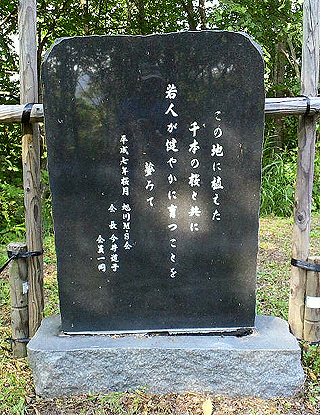 この地に植えた
千本の桜と共に
若人が健やかに育つことを
誓ろて
平成七年桜月 旭川N8会
会長今井道子
会員一同